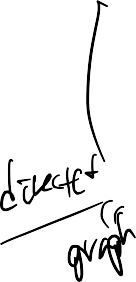 directed
graph